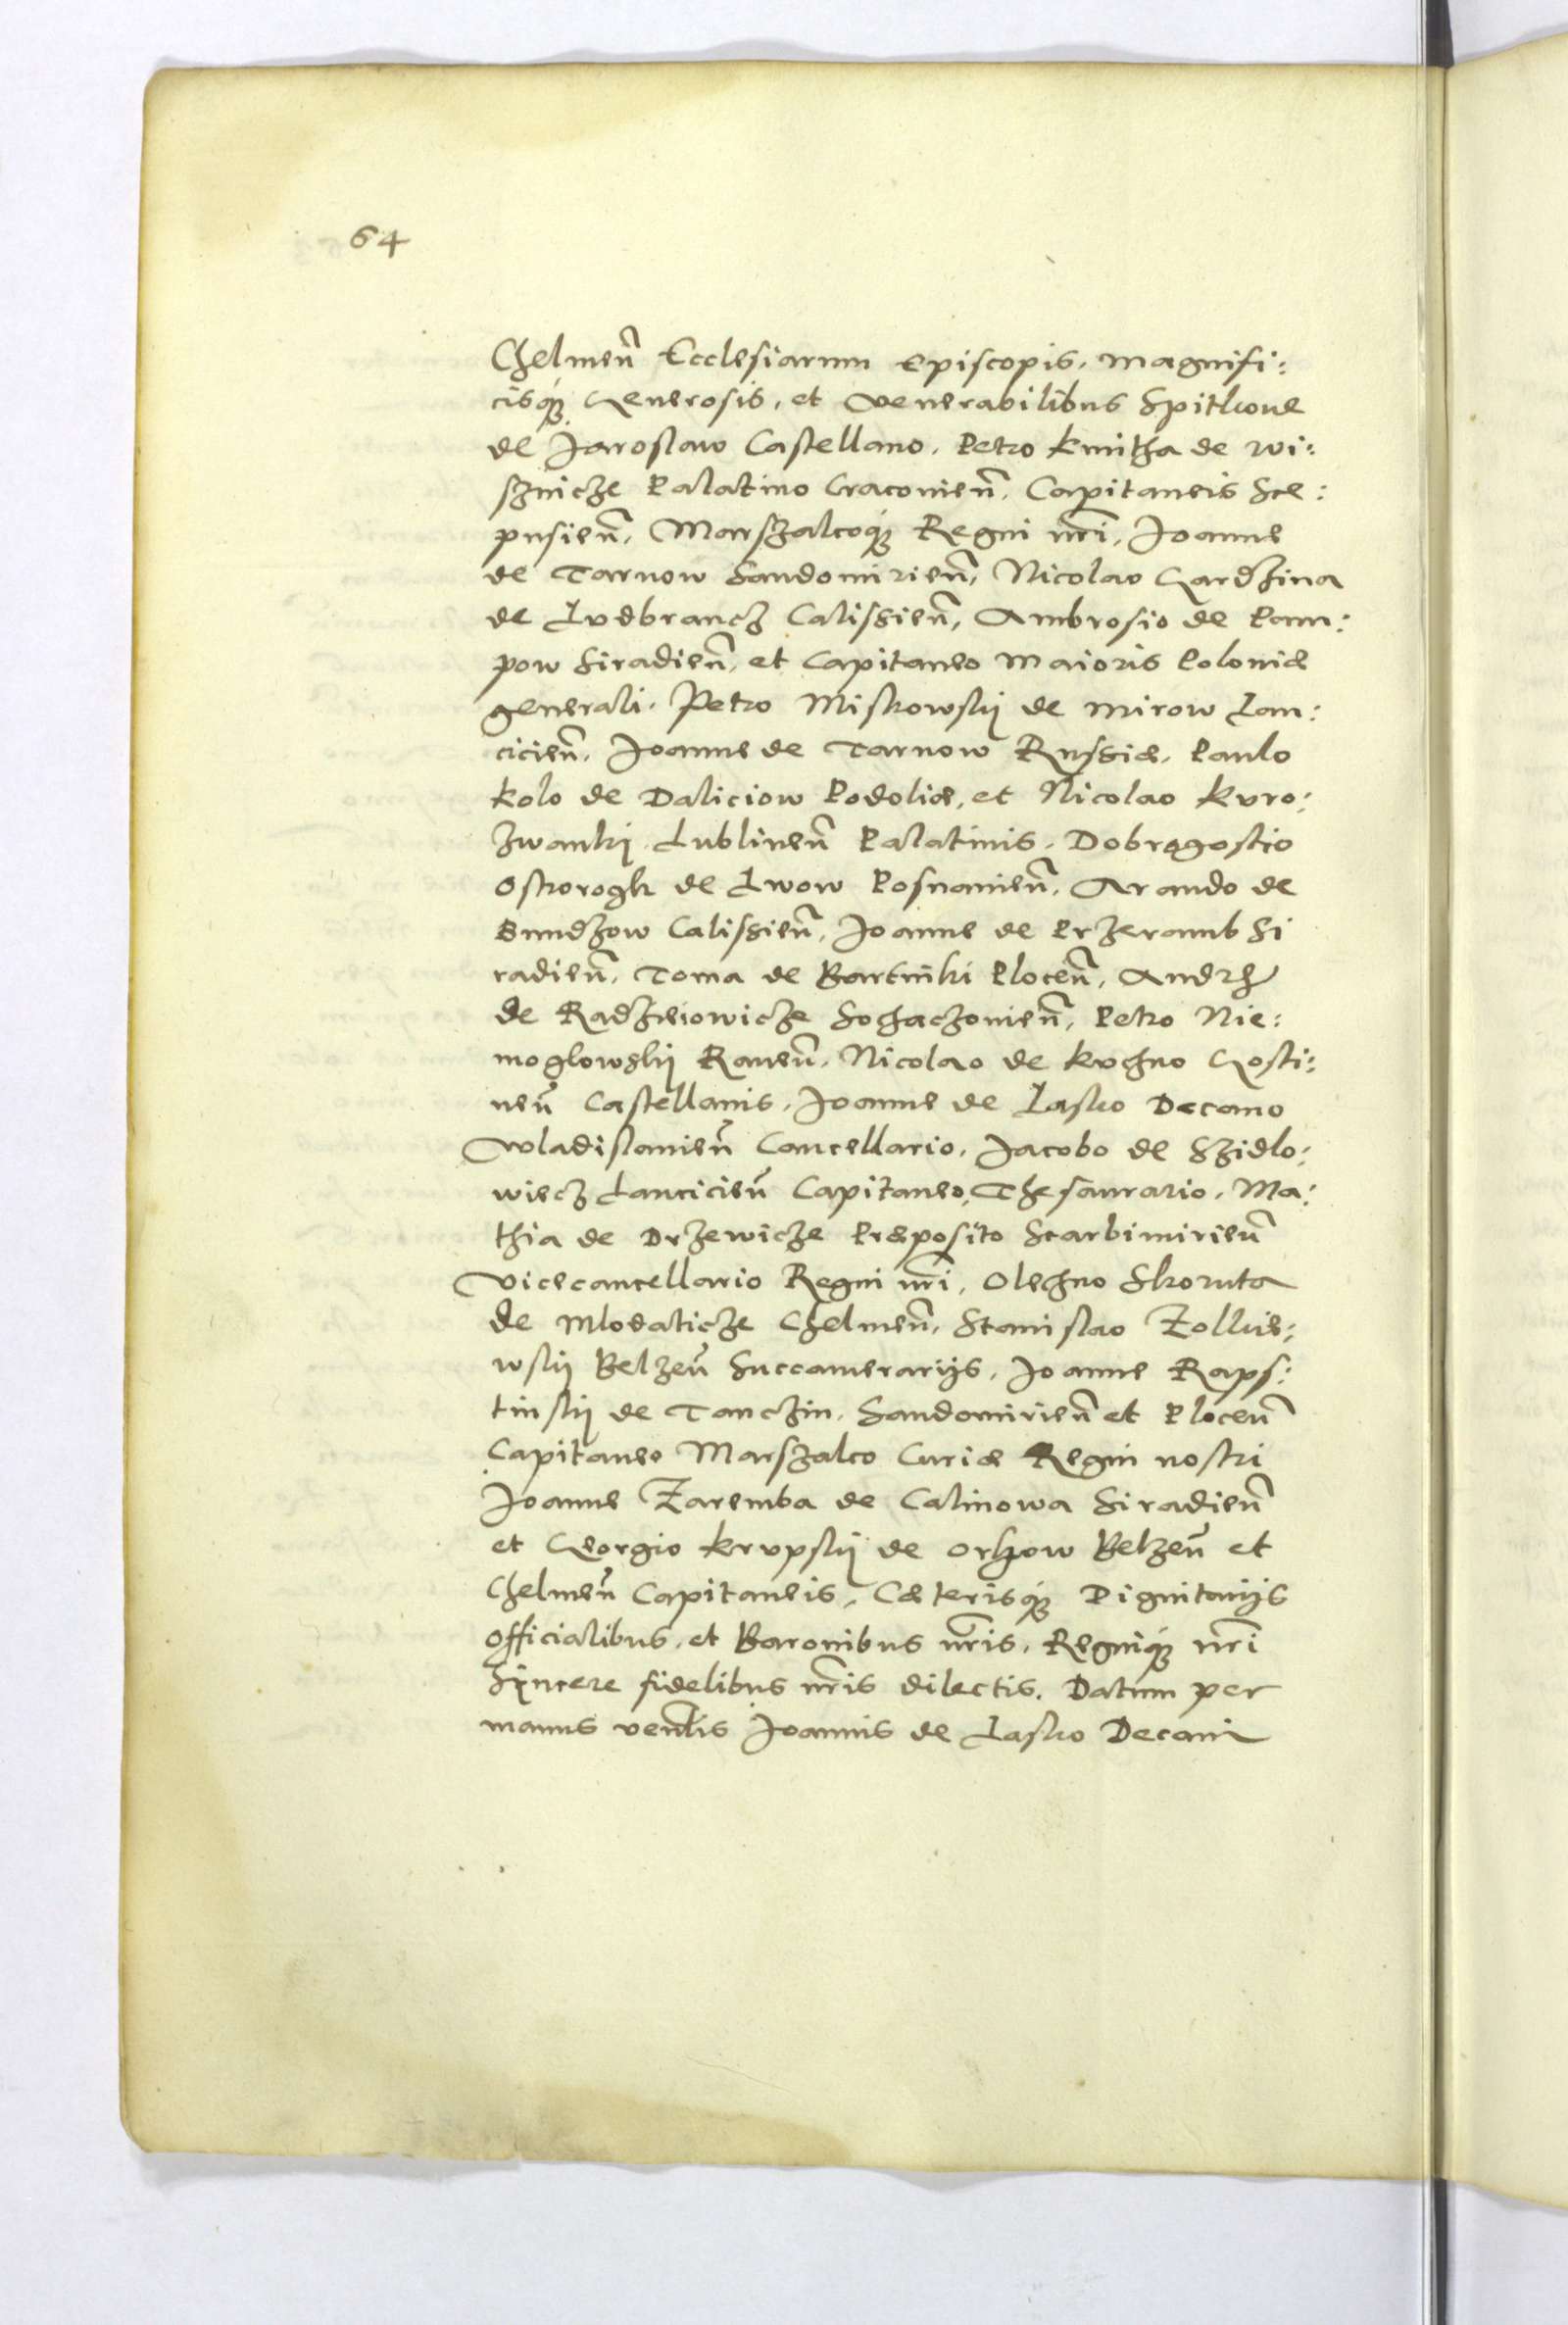 64
Chelmen̄ Ecclesiarum Episcopis, Magnifi:
cisq́ꝫ Generosis, et Venerabilibus Spitkone
de Jaroslaw Castellano, Petro kmitha de Wi:
sznicze Palatino Cracovien̄, Capitaneis Sce:
pusien̄, Marszalcoq́ꝫ Regni nr̄i, Joanne
de Tarnow Sandomirien̄, Nicolao Gardzina
de Lvdbrancz Calissien̄, Ambrosio de Pam:
pow Siradien̄, et Capitaneo Maioris Poloniæ
generali, Petro Miskowskij de Mirow Lan:
cicien̄, Joanne de Tarnow Russiæ, Paulo
kolo de Daliciow Podoliæ, et Nicolao kvro:
zwankij Lublinen̄ Palatinis, Dobrogostio
Ostrorogk de Lwow Posnanien̄, Arando de
Bnudzow Calissien̄, Joanne de Przeramb Si
radien̄, Toma de Bartniki Plocen̄, Andrᵉ
de Radzieiowicze Sochaczovien̄, Petro Nie:
moglowskij Raven̄, Nicolao de kvchno Gosti:
nen̄ Castellanis, Joanne de Lasko Decano
Wladislavien̄ Cancellario, Jacobo de Szidlo:
wiecz Lancicien̄ Capitaneo, Thesaurario, Ma:
thia de Drzewicze Præposito Scarbimirien̄
Vicecancellario Regni nr̄i, Olechno Skoruta
de Mlodaticze Chelmen̄, Stanislao Zolkie:
wskij Belzen̄ Succamerarijs, Joanne Raps:
tinskij de Tanczin, Sandomirien̄ et Plocen̄
Capitaneo Marszalco Curiæ Regni nostri
Joanne Zaremba de Calinowa Siradien̄
et Georgio krvpskij de Orchow Belzen̄ et
Chelmen̄ Capitaneis, Cæterisq́ꝫ Dignitarijs
Officialibus, et Baronibus nr̄is, Regniq́ꝫ nr̄i
Sÿncere fidelibus nr̄is dilectis. Datum per
manus ven̄lis Joannis de Lasko Decani